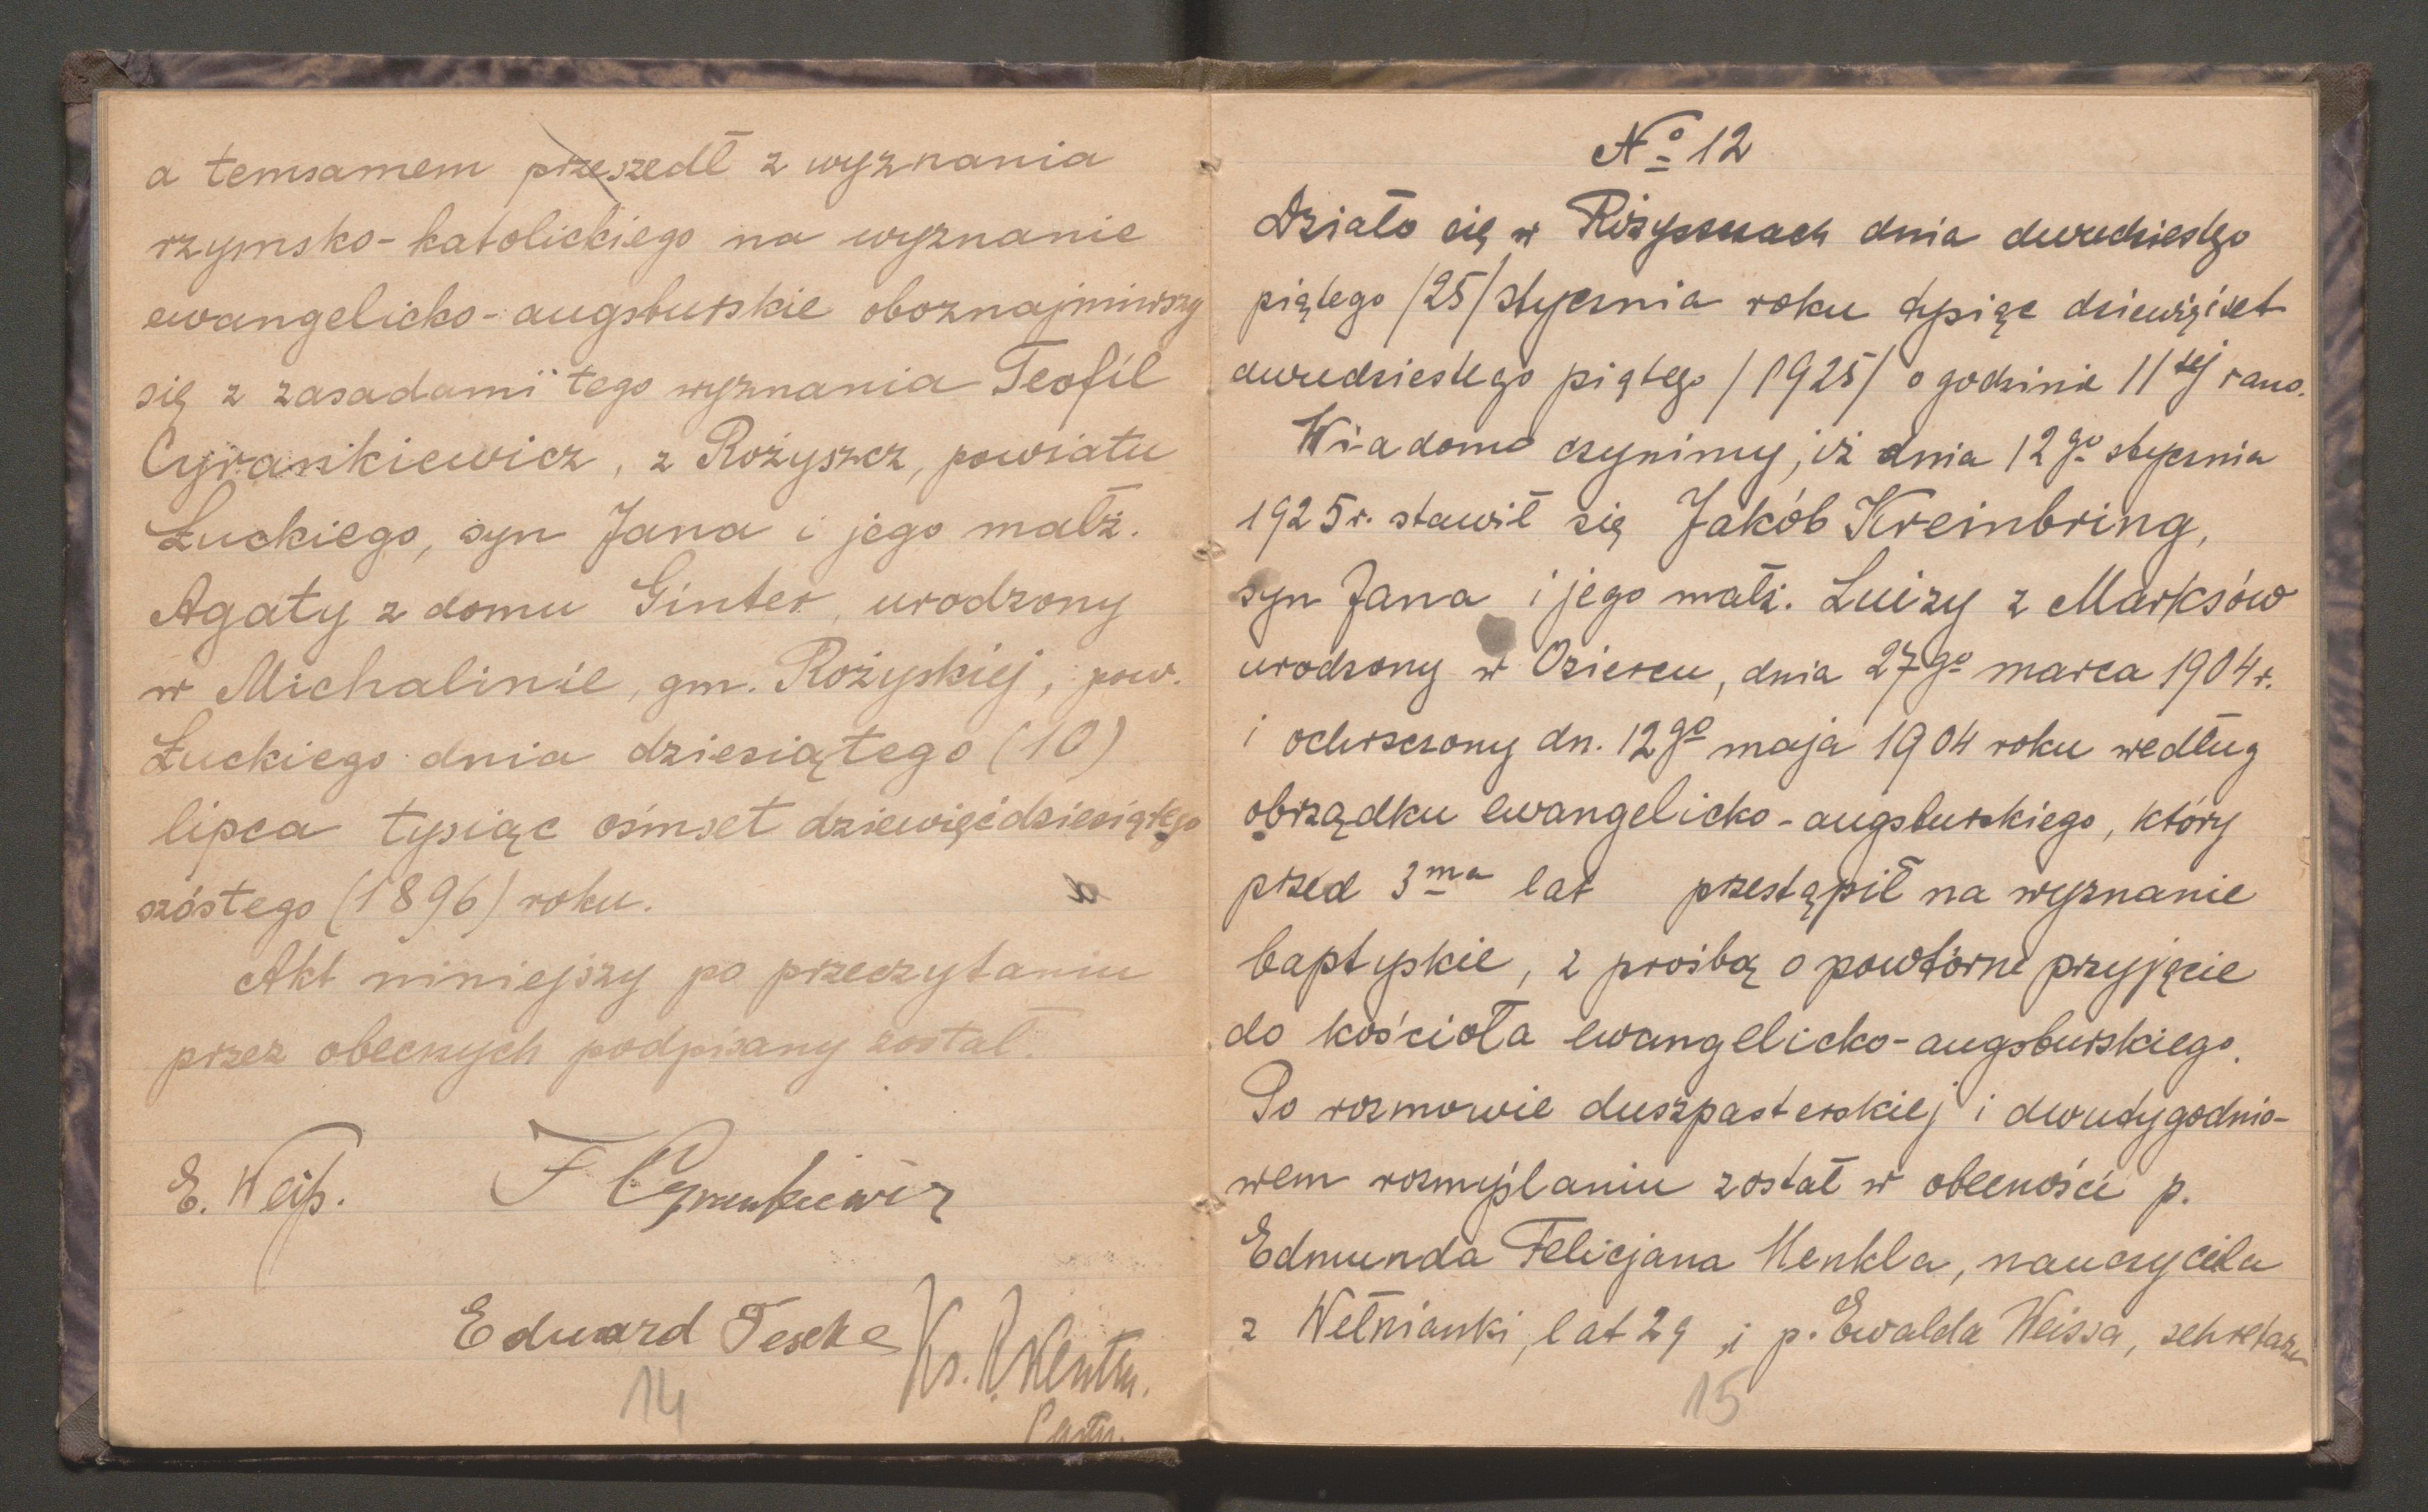 a temsamem przeszedł z wyznania
rzymsko-katolickiego na wyznanie
ewangelicko-augsburskie oboznajmiwszy
się z zasadami tego wyznania Teofil
Cyrankiewicz, z Rożyszcz, powiatu
Łuckiego, syn Jana i jego małż.
Agaty z domu Ginter, urodzony
w Michalinie, gm. Rożyskiej, pow.
Łuckiego dnia dziesiątego (10)
lipca tysiąc ośmset dziewięćdziesiątego
szóstego (1896) roku.
Akt niniejszy po przeczytaniu
przez obecnych podpisany został.
E. Weiß. F Cyrankiewicz
Eduard Teske Ks. R. Kersten.
Pastor.
14
No 12
Działo się w Rożyszczach dnia dwudziestego
piątego /25/ stycznia roku tysiąc dziewięćset
dwudziestego piątego /1925/ o godzinie 11tej rano.
Wiadomo czynimy, iż dnia 12go stycznia
1925 r. stawił się Jakób Kreinbring,
syn Jana i jego małż. Luizy z Marksów
urodzony w Oziercu, dnia 27go marca 1904 r.
i ochrzczony dn. 12go maja 1904 roku według
obrządku ewangelicko-augsburskiego, który
przed 3ma lat przestąpił na wyznanie
baptyskie, z prośbą o powtórne przyjęcie
do kościoła ewangelicko-augsburskiego.
Po rozmowie duszpasterskiej i dwutygodnio-
wem rozmyślaniu został w obecności p.
Edmunda Felicjana Henkla, nauczyciela
z Wełnianki, lat 29 i p. Ewalda Weissa, sekretarza
15